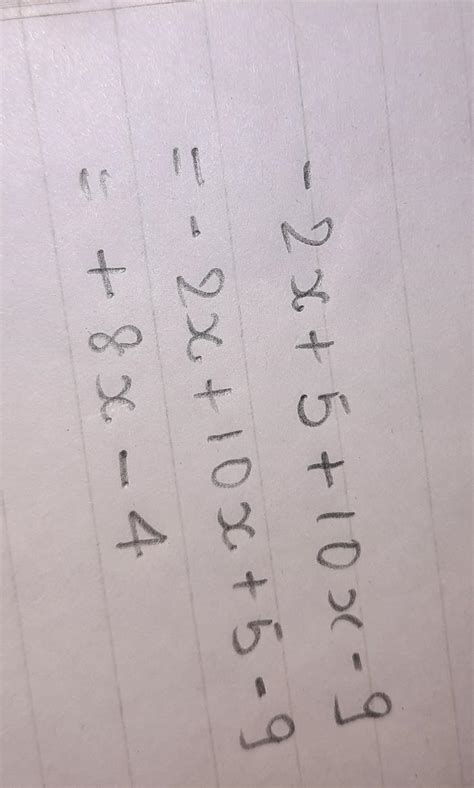 - 2x + 5 + 10x - 9
= - 2x + 10x + 5 - 9
= + 8x - 4